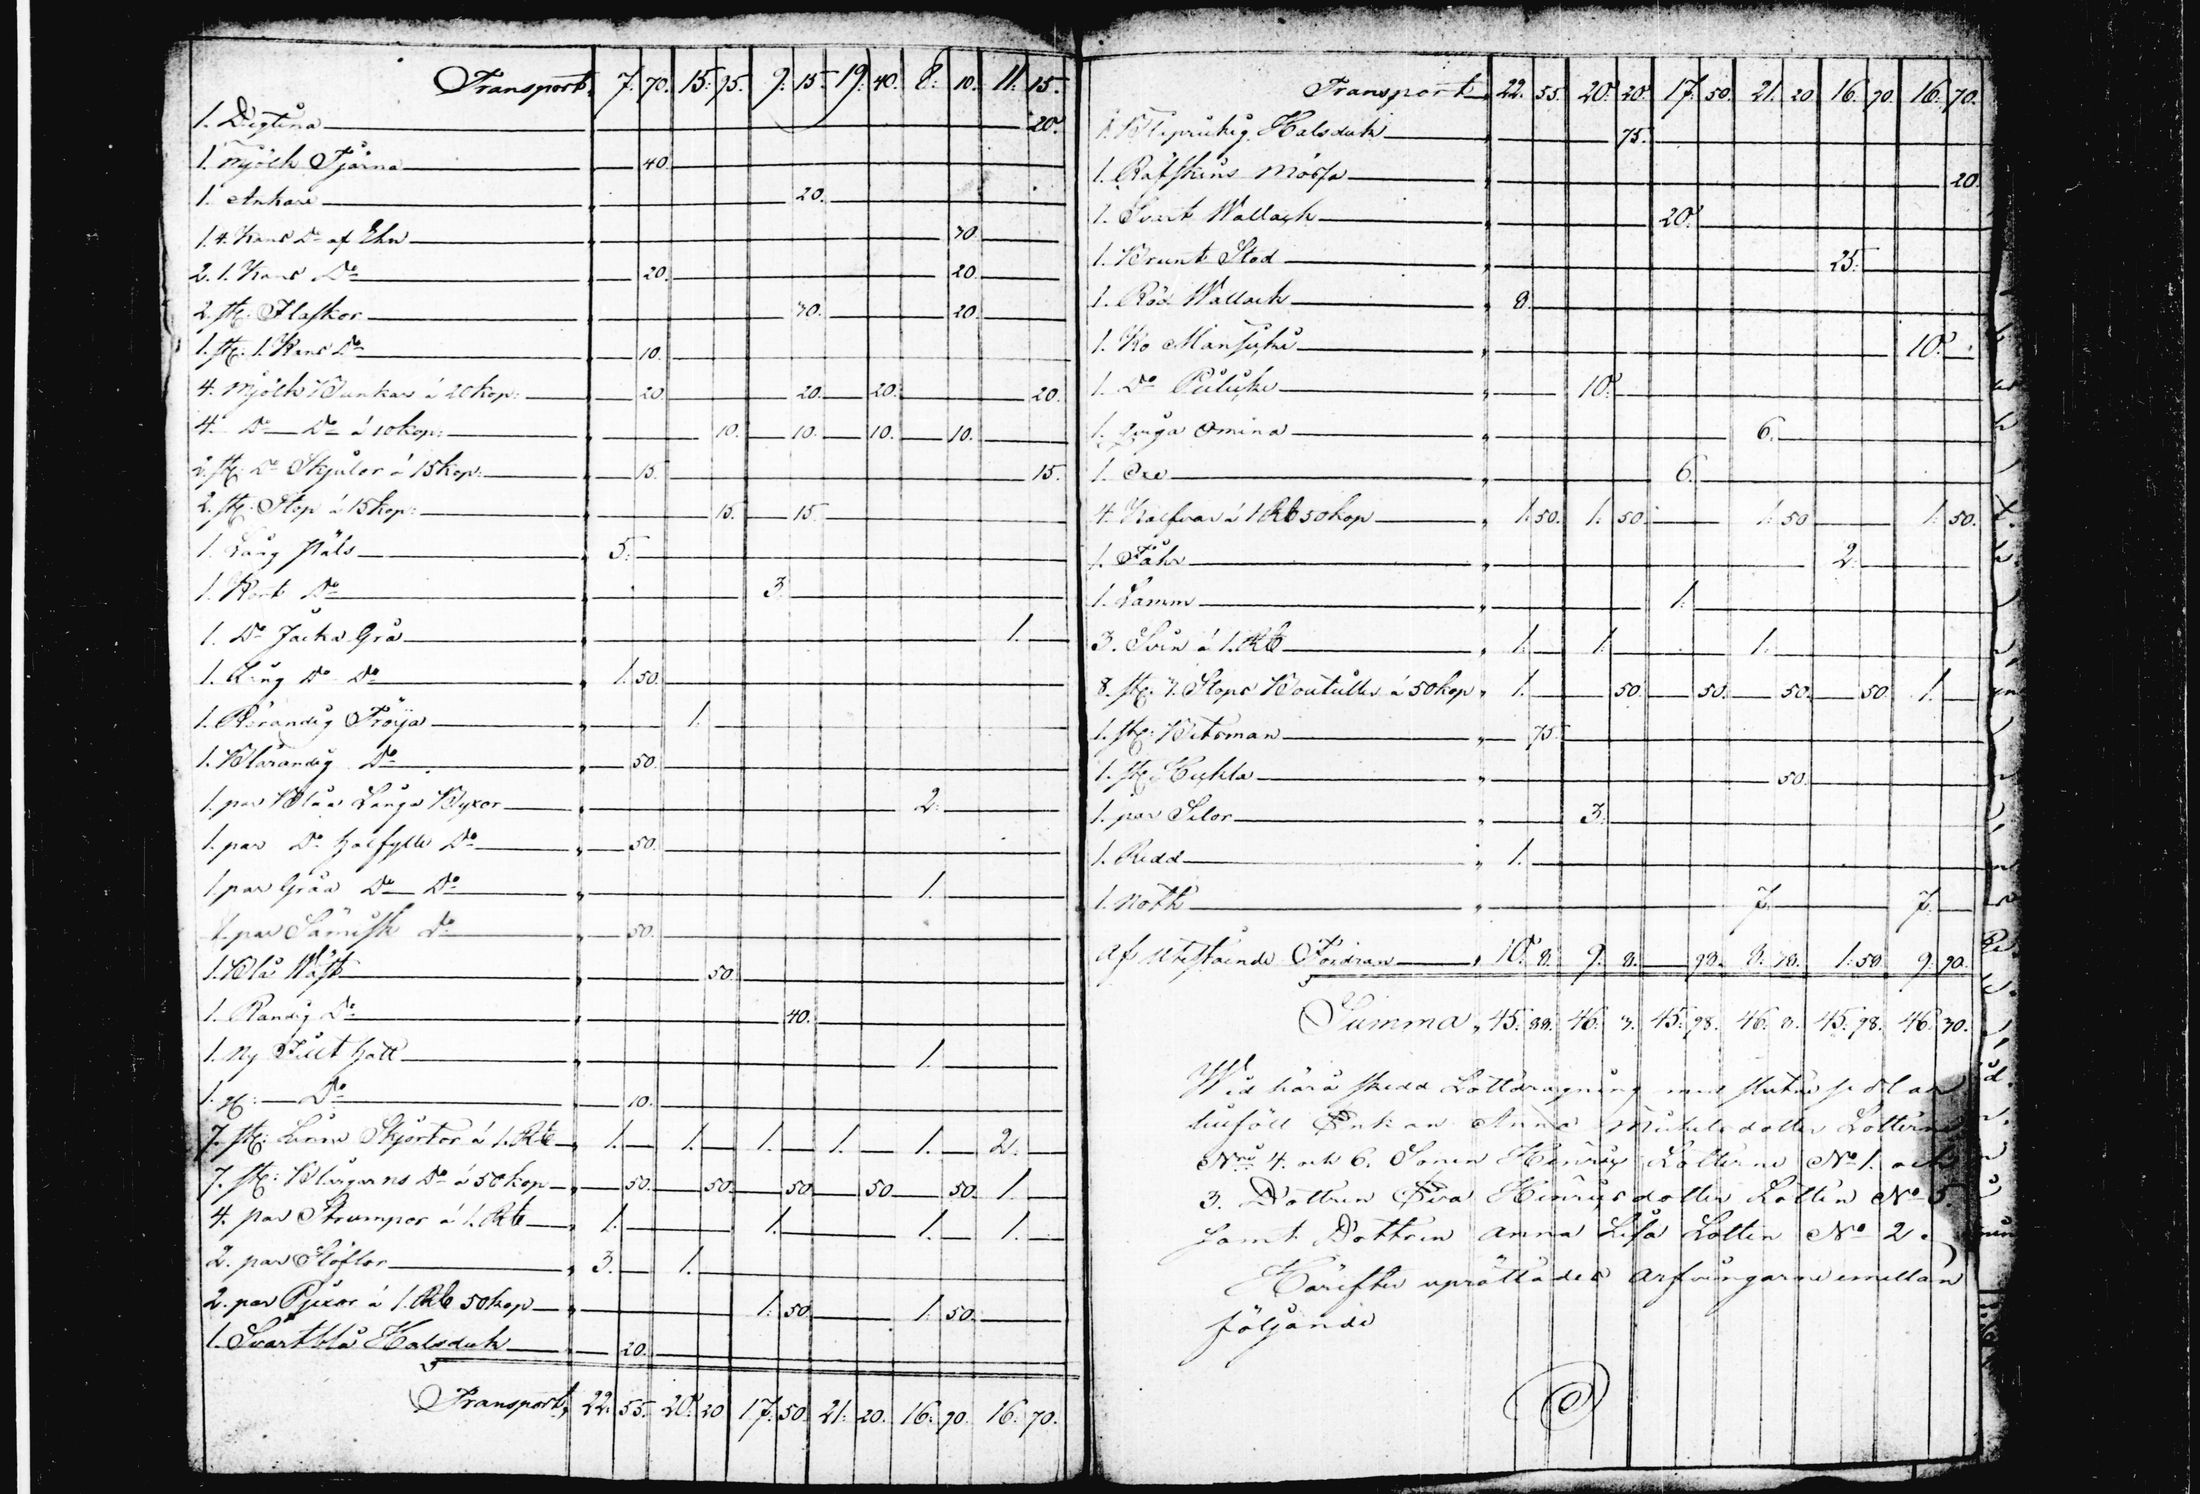 Transport, 7. 70. 15. 95. 9. 15. 19. 40. 8. 10. 11. 15.
1. Digtina 20.
1. Mjölk Tjärna 40.
1. Ankare 20.
1. 4. Kans Do af Ehn 30.
2. 1. Kans Do 20. 20.
2. st: Flaskor 30. 20.
1. st: 1. Kans Do 10.
4. Mjölk Bunkar á 20 kop: 20. 20. 20. 20.
4. Do Do á 10 kop: 10. 10. 10. 10.
2. st: Do Skjulor á 15 kop: 15. 15.
2. st: Stop á 15 kop: 15. 15.
1. Lång Päls 5.
1. Kort Do 3.
1. Do Jacka Grå 1.
1. Lång Do Do 1. 50.
1. Rörandig Tröija 1.
1. Blårandig Do 50.
1. par Blåa Långa Byxor 2.
1. par Do halfylle Do 50.
1. par Gråa Do Do 1.
1. par Sämisk Do 50.
1. Blå Wäst 50.
1. Randig Do 40.
1. Ny Filt hatt 1.
1. Do 10.
7. st: Linne Skjortor á 1. Rb 1. 1. 1. 1. 1. 2.
7. st: Blårgarns Do á 50 kop 50. 50. 50. 50 50. 1.
4. par Strumpor á 1. Rb 1. 1. 1. 1.
2. par Stöflor 3. 1.
2. par Pjexor á 1. Rb 50 kop 1. 50. 1. 50.
1. Svartblå Halsduk 20.
Transport, 22. 55. 20. 20 17. 50. 21. 20. 16. 90. 16. 70.
Transport, 22. 55. 20. 20. 17. 50. 21. 20 16. 90. 16. 70.
1. Halsduk 75.
1. Räfskins Mössa 20.
1. Svart Wallack 20.
1. Brunt Stod 25.
1. Röd Wallack 8.
1. Ko Mansicki 10.
1. Do 10.
1. Qviga Omina 6.
1. Oxe 6.
4. Kalfvar á 1 Rb 50 kop 1. 50. 1. 50. 1. 50 1. 50.
1. Fåhr 2.
1. Lamm 1.
3. Svin á 1. Rb 1. 1. 1.
8. st: Stops Boutuller á 50 kop 1. 50. 50. 50. 50. 1.
1. st: Bitsman 75.
1. st: 50.
1. par Selor 3.
1. Redd 1.
1. Noth 7. 7.
Af Utestående Fordran 10. 8. 9. 8. 98. 8. 78. 1. 58. 9. 90.
Summa, 45. 88. 46. 3. 45. 98. 46. 8. 45. 98. 46. 30.
Wid härå skedd Lottdragning med slutne sedlar
tillföll Enkan Anna Mickelsdotter Lotterne
Nro 4. och 6. Sonen Hinric Lotterne No 1. och
3. Dottren Eva Henricsdotter Lotten No 5.
samt Dottren Anna Lisa Lotten No 2.
Härefter uprättades arfvingarne emellan
följande